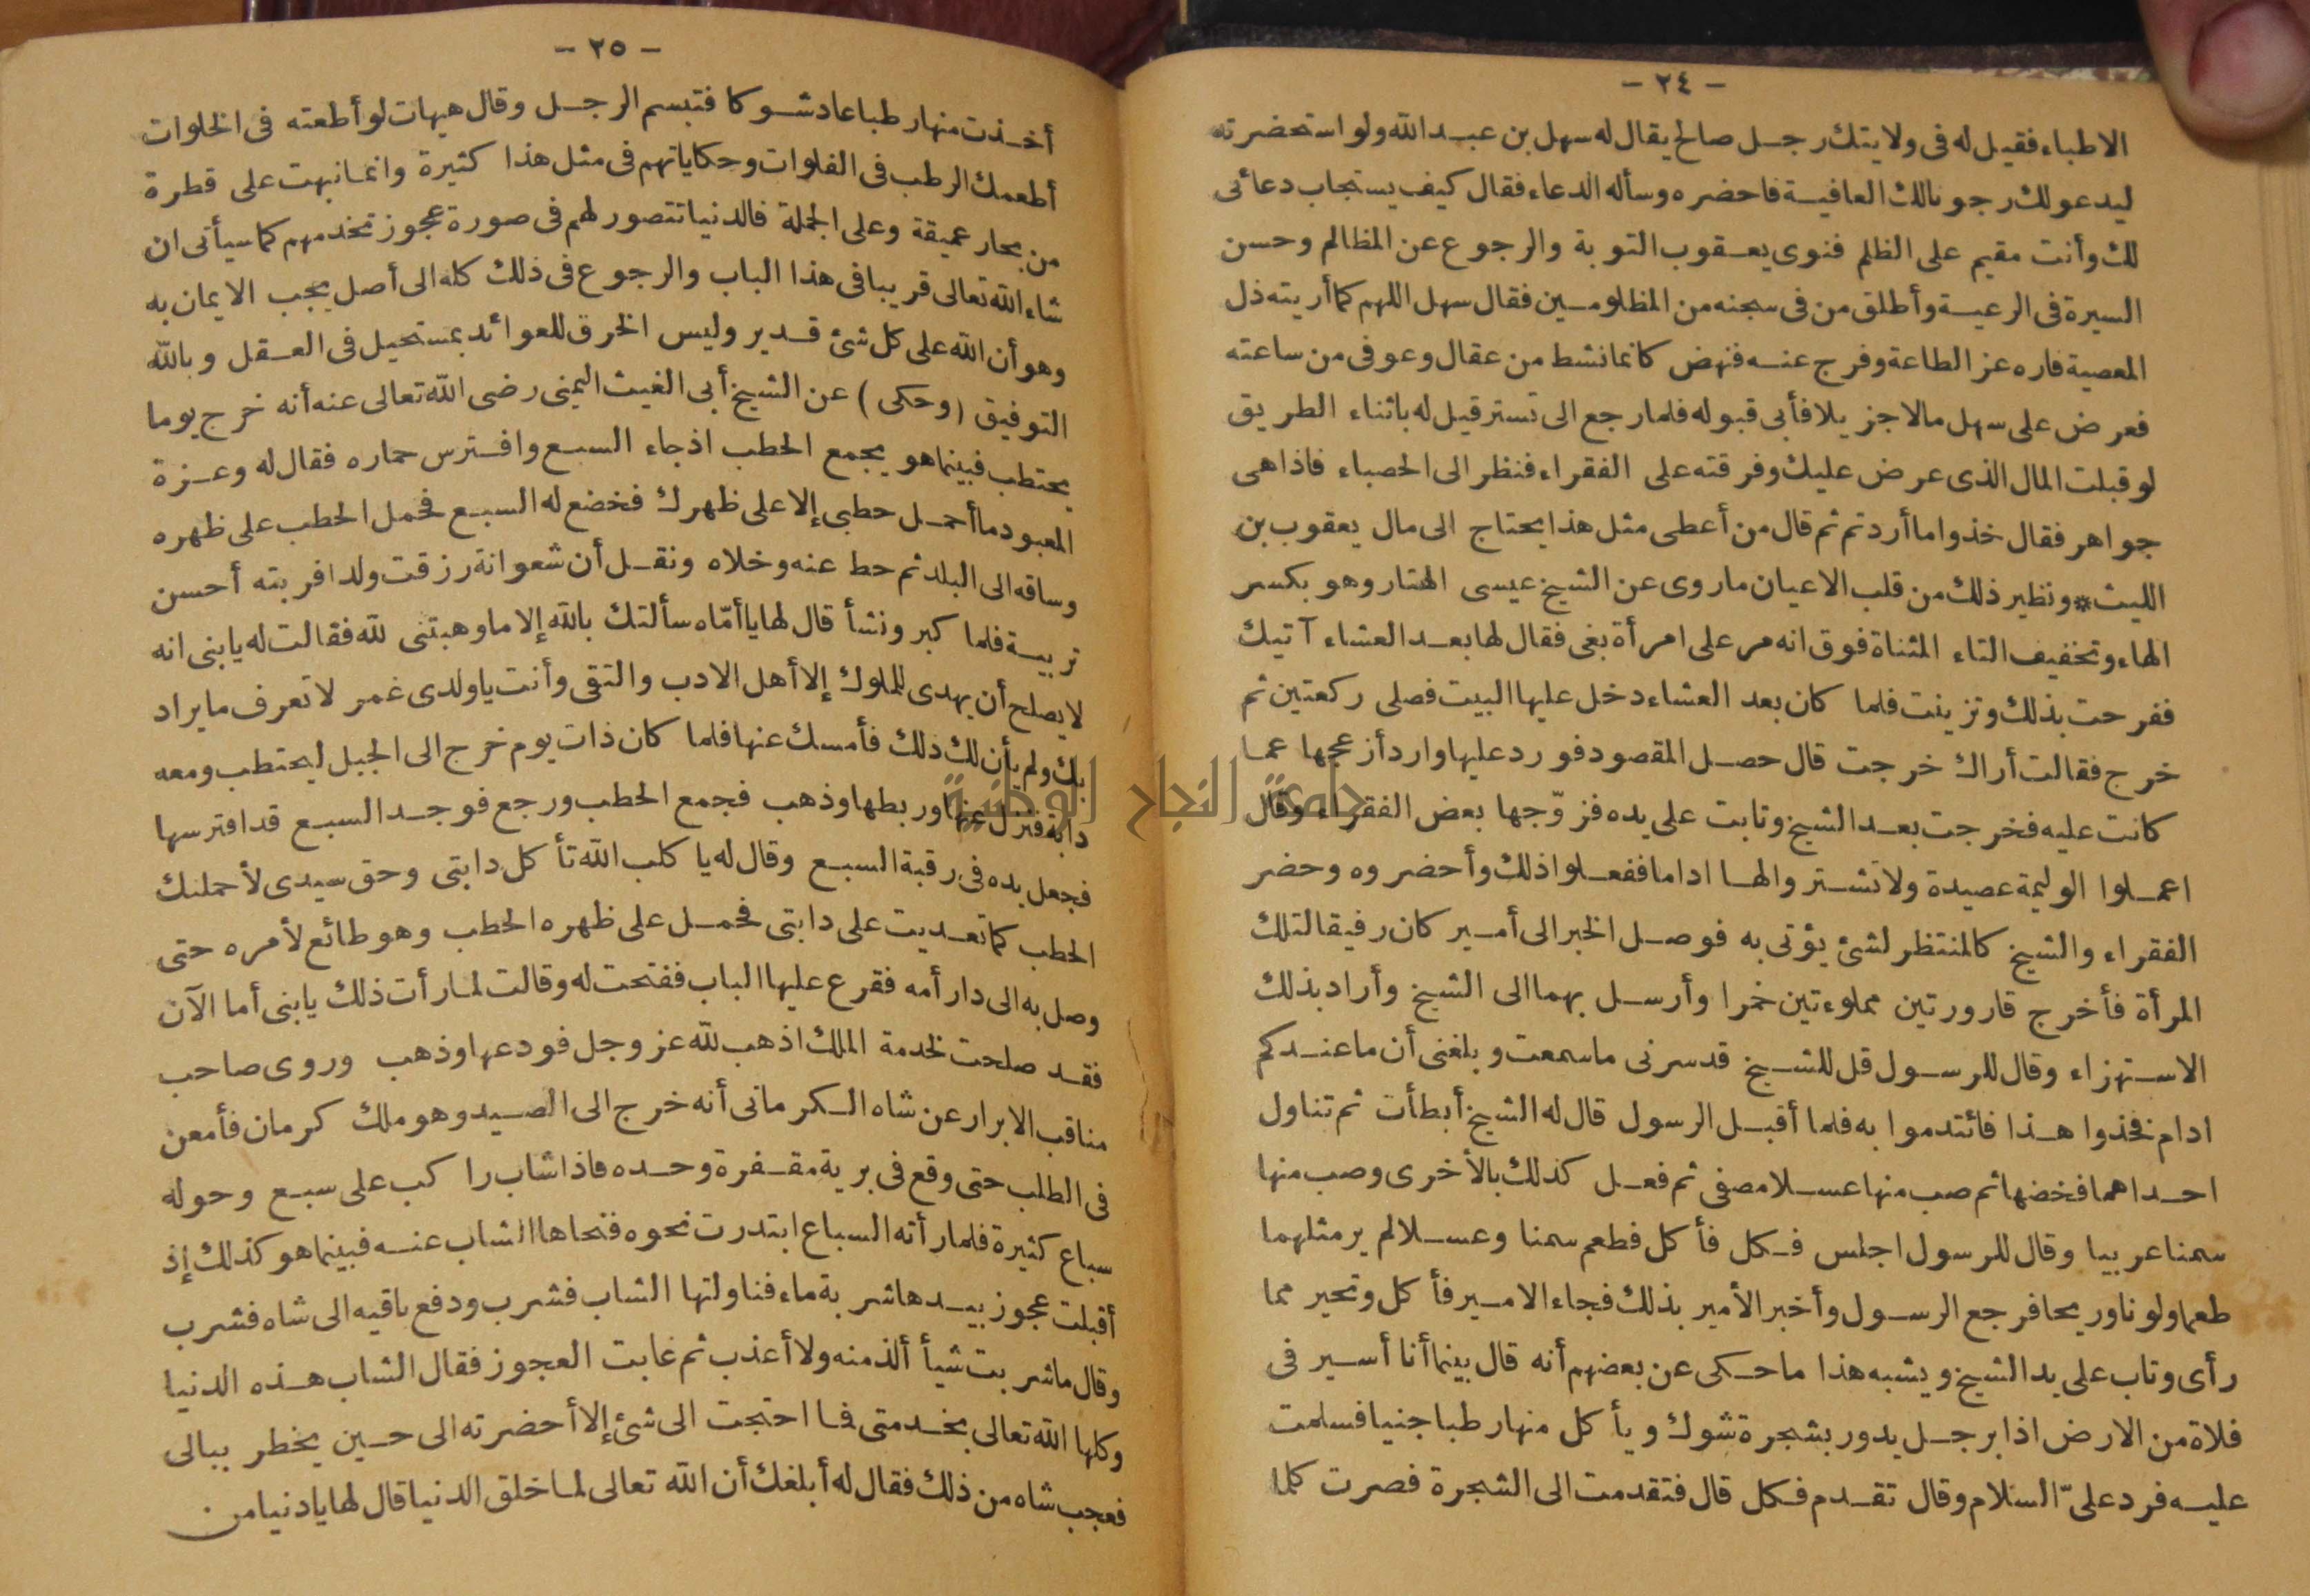 - ٢٤ -
الاطباء فقيل له فى ولايتك رجل صالح يقال له سهل بن عبد الله ولو استحضرته
ليدعو لك رجونا لك العافية فاحضره وسأله الدعاء فقال كيف يستجاب دعائى
لك وأنت مقيم على الظلم فنوى يعقوب التوبة والرجوع عن المظالم وحسن
السيرة فى الرعية وأطلق من فى سجنه من المظلومين فقال سهل اللهم كما أريته ذل
المعصية فاره عز الطاعة وفرج عنه فنهض كانما نشط من عقال وعوفى من ساعته
فعرض على سهل مالا جزيلا فأبى قبوله فلما رجع الى تستر قيل له باثناء الطريق
لو قبلت المال الذى عرض عليك وفرقته على الفقراء فنظر الى الحصباء فاذا هى
جواهر فقال خذوا ما أردتم ثم قال من أعطى مثل هذا يحتاج الى مال يعقوب بن
الليث * ونظير ذلك من قلب الاعيان ماروى عن الشيخ عيسى الهتار وهو بكسر
الهاء وتخفيف التاء المثناة فوق انه مر على امرأة بغى فقال لها بعد العشاء آتيك
ففرحت بذلك وتزينت فلما كان بعد العشاء دخل عليها البيت فصلى ركعتين ثم
خرج فقالت أراك خرجت قال حصل المقصود فورد عليها وارد أزعجها عما
كانت عليه فخرجت بعد الشيخ وتابت على يده فزوّجها بعض الفقراء وقال
اعملوا الوليمة عصيدة ولا تشتروا لها اداما ففعلوا ذلك وأحضروه وحضر
الفقراء والشيخ كالمنتظر لشئ يؤتى به فوصل الخبر الى أمير كان رفيقا لتلك
المرأة فأخرج قارورتين مملوءتين خمرا وأرسل بهما الى الشيخ وأراد بذلك
الاستهزاء وقال للرسول قل للشيخ قد سرنى ما سمعت وبلغنى أن ما عندكم
ادام فخذوا هذا فائتدموا به فلما أقبل الرسول قال له الشيخ أبطأت ثم تناول
احداهما فخضها ثم صب منها عسلا مصفى ثم فعل كذلك بالأخرى وصب منها
سمنا عربيا وقال للرسول اجلس فكل فأكل فطعم سمنا وعسلا لم ير مثلهما
طعما ولونا وريحا فرجع الرسول وأخبر الأمير بذلك فجاء الامير فأكل وتحير مما
رأى وتاب على يد الشيخ ويشبه هذا ما حكى عن بعضهم أنه قال بينما أنا أسير فى
فلاة من الارض اذا برجل يدور بشجرة شوك ويأكل منها رطبا جنيا فسلمت
عليه فرد علىّ السلام وقال تقدم فكل قال فتقدمت الى الشجرة فصرت كلما
- ٢٥ -
أخذت منها رطبا عاد شوكا فتبسم الرجل وقال هيهات لو أطعته فى الخلوات
أطعمك الرطب فى الفلوات وحكاياتهم فى مثل هذا كثيرة وانما نبهت على قطرة
من بحار عميقة وعلى الجملة فالدنيا تتصور لهم فى صورة عجوز تخدمهم كما سيأتى ان
شاء الله تعالى قريبا فى هذا الباب والرجوع فى ذلك كله الى أصل يجب الايمان به
وهو أن الله على كل شئ قدير وليس الخرق للعوائد بمستحيل فى العقل وبالله
التوفيق (وحكى) عن الشيخ أبى الغيث اليمنى رضى الله تعالى عنه أنه خرج يوما
يحتطب فبينما هو يجمع الحطب اذ جاء السبع وافترس حماره فقال له وعزة
المعبود ما أحمل حطبى إلا على ظهرك فخضع له السبع فحمل الحطب على ظهره
وساقه الى البلد ثم حط عنه وخلاه ونقل أن شعوانة رزقت ولدا فربته أحسن
تربية فلما كبر ونشأ قال لها يا أمّاه سألتك بالله إلا ما وهبتنى لله فقالت له يابنى انه
لا يصلح أن يهدى للملوك إلا أهل الادب والتقى وأنت ياولدى غمر لا تعرف ما يراد
بك ولم يأن لك ذلك فأمسك عنها فلما كان ذات يوم خرج الى الجبل ليحتطب ومعه
دابة فنزل عنها وربطها وذهب فجمع الحطب ورجع فوجد السبع قد افترسها
فجعل يده فى رقبة السبع وقال له يا كلب الله تأكل دابتى وحق سيدى لأحملنك
الحطب كما تعديت على دابتى فحمل على ظهره الحطب وهو طائع لأمره حتى
وصل به الى دار أمه فقرع عليها الباب ففتحت له وقالت لما رأت ذلك يابنى أما الآن
فقد صلحت لخدمة الملك اذهب لله عز وجل فودعها وذهب وروى صاحب
مناقب الابرار عن شاه الكرمانى أنه خرج الى الصيد وهو ملك كرمان فأمعن
فى الطلب حتى وقع فى برية مقفرة وحده فاذا شاب راكب على سبع وحوله
سباع كثيرة فلما رأته السباع ابتدرت نحوه فنحاها الشاب عنه فبينما هو كذلك إذ
أقبلت عجوز بيدها شربة ماء فناولتها الشاب فشرب ودفع باقيه الى شاه فشرب
وقال ما شربت شيأ ألذ منه ولا أعذب ثم غابت العجوز فقال الشاب هذه الدنيا
وكلها الله تعالى بخدمتى فما احتجت الى شئ إلا أحضرته الى حين يخطر ببالى
فعجب شاه من ذلك فقال له أبلغك أن الله تعالى لما خلق الدنيا قال لها يادنيا من
جامعة النجاح الوطنية